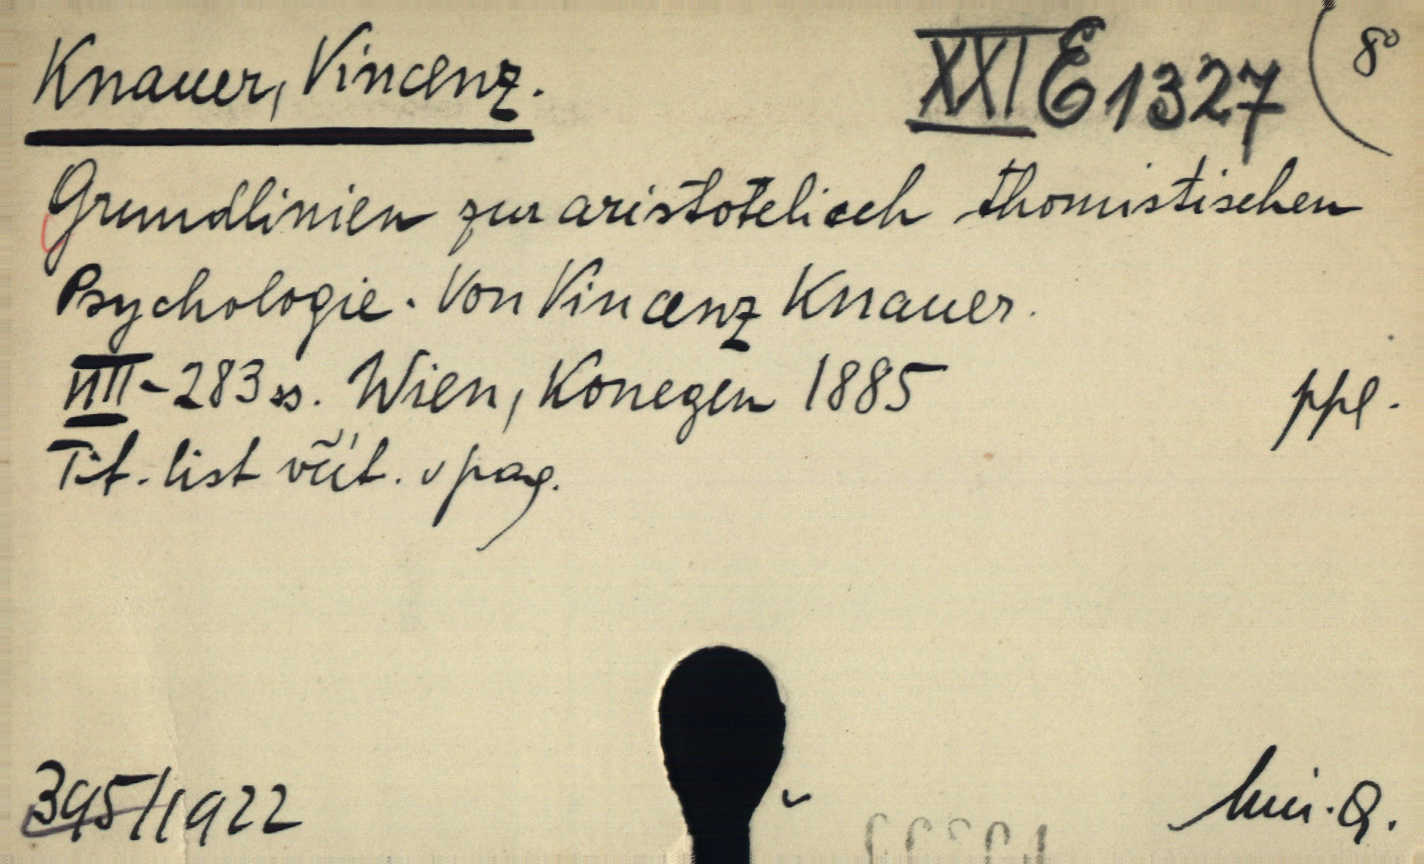 Knauer, Vincenz.
XXI E 1327
8°
Grundlinien zur aristotelisch thomistischen
Psychologie. Von Vincenz Knauer.
VIII-283 ss. Wien, Konegen 1885
ppl.
Tit. list vňit. v pag.
395/1922